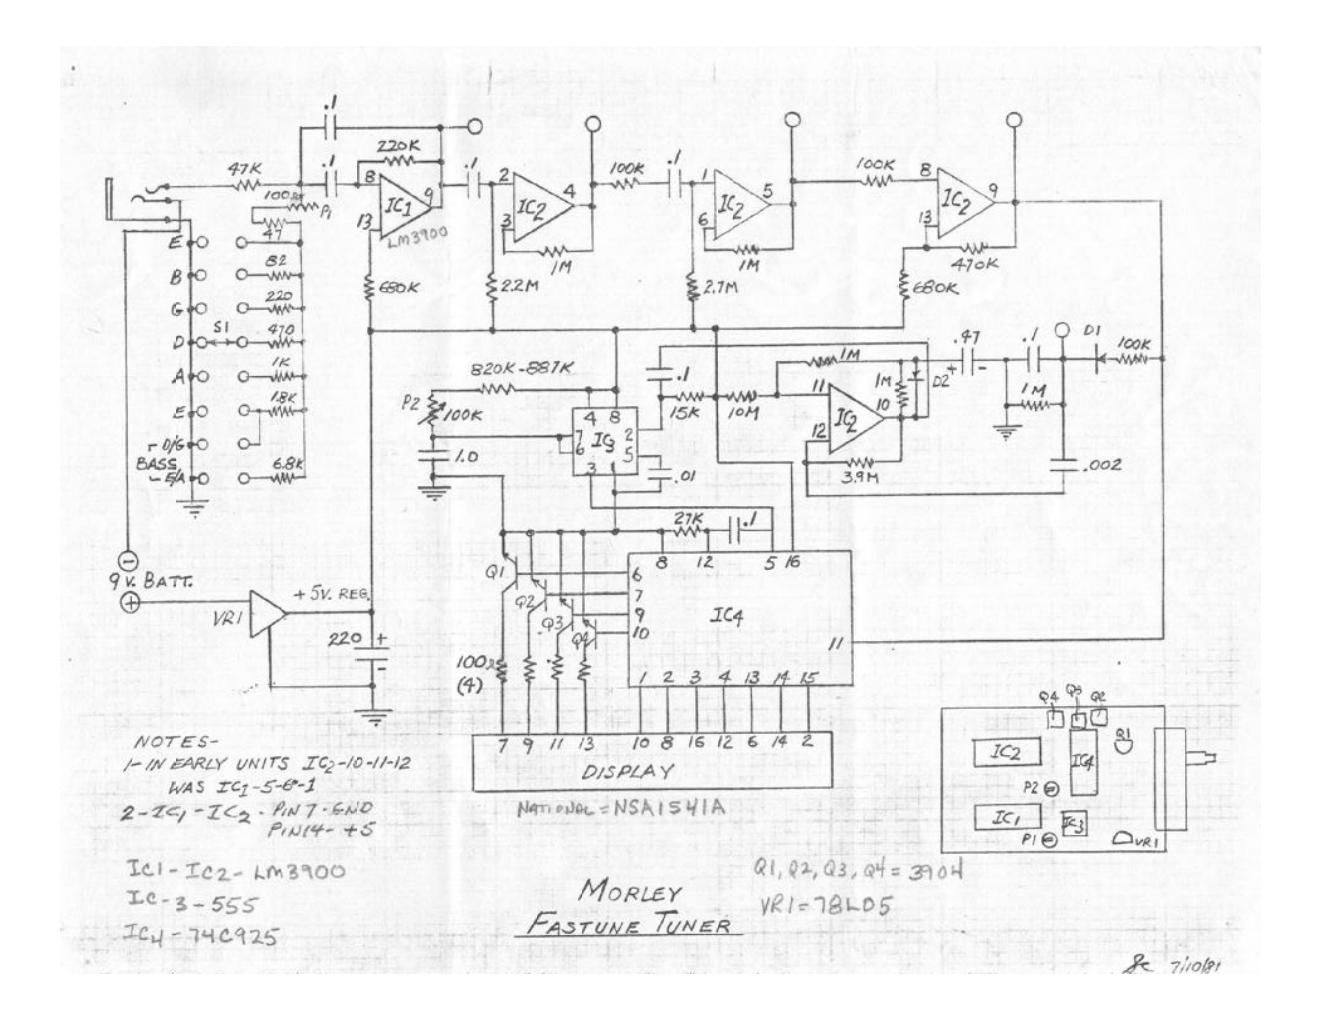 .1
220K
.1
47K
100Ω
P1
8
IC1
9
13
LM3900
.1
2
IC2
4
3
1M
100K
.1
1
IC2
5
6
1M
100K
8
IC2
9
13
470K
680K
2.2M
2.7M
680K
E
47
B
82
G
220
D
S1
470
A
1K
E
1.8K
D/G
BASS
E/A
6.8K
820K-887K
P2
100K
1.0
4
8
7
6
IC3
2
5
3
1
.01
.1
15K
10M
1M
11
IC2
10
12
1M
D2
3.9M
.47
+
-
.1
1M
D1
100K
.002
27K
.1
9V. BATT.
VR1
+5V. REG.
220
+
-
Q1
Q2
Q3
Q4
100Ω
(4)
8
12
5
16
6
7
9
10
IC4
11
1
2
3
4
13
14
15
7
9
11
13
10
8
16
12
6
14
2
DISPLAY
NATIONAL=NSA1541A
NOTES-
1-IN EARLY UNITS IC2-10-11-12
WAS IC1-5-6-1
2-IC1-IC2-PIN 7-GND
PIN14-+5
IC1-IC2-LM3900
IC-3-555
IC4-74C925
MORLEY
FASTUNE TUNER
Q1, Q2, Q3, Q4=3904
VR1=78L05
Q4
Q3
Q2
Q1
IC2
IC4
P2
IC1
IC3
P1
VR1
7/10/81